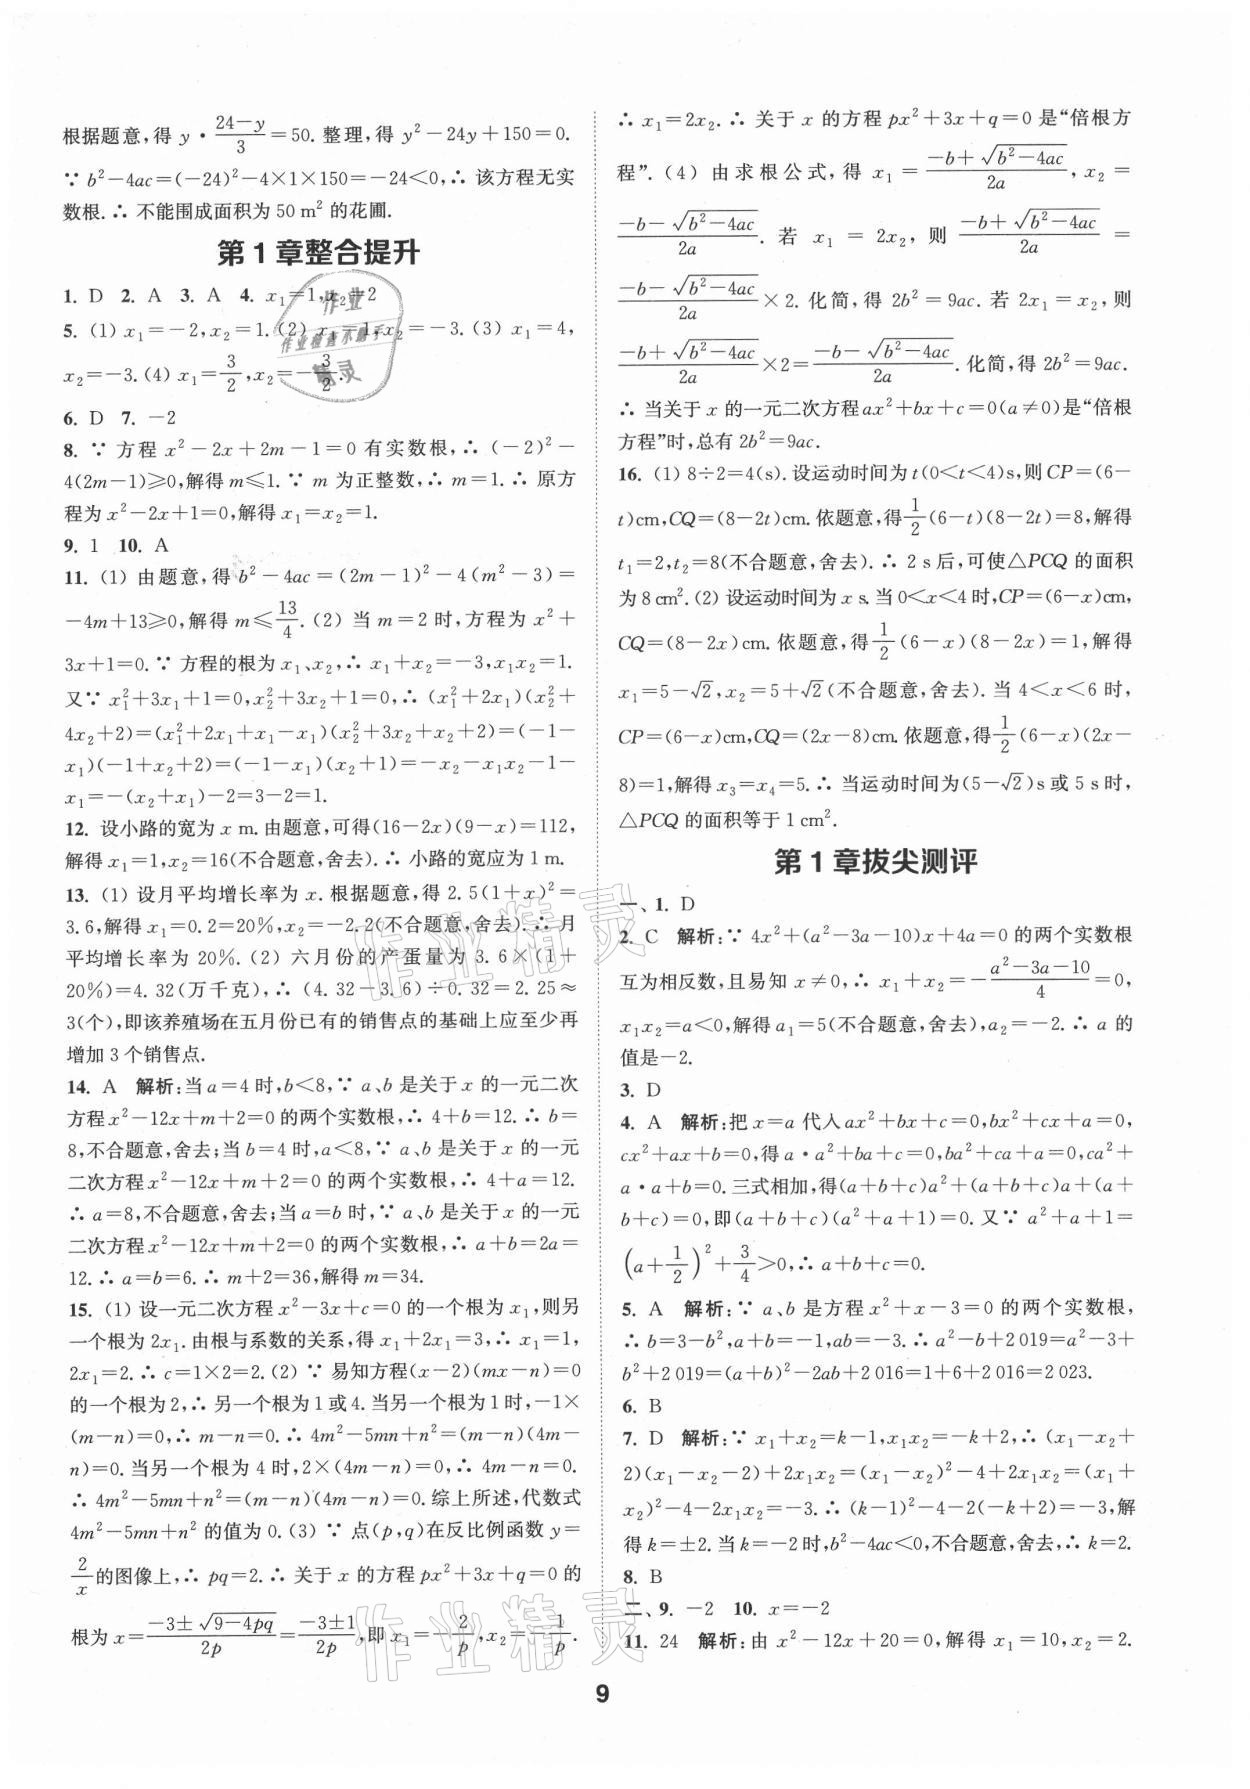 根据题意,得 y·(24－y)/3＝50.整理,得 y²－24y＋150＝0.
∵ b²－4ac＝(－24)²－4×1×150＝－24<0,∴ 该方程无实
数根.∴ 不能围成面积为 50 m² 的花圃.
第 1 章整合提升
1. D 2. A 3. A 4. x₁＝1,x₂＝2
5. (1) x₁＝－2,x₂＝1.(2) x₁＝1,x₂＝－3.(3) x₁＝4,
x₂＝－3.(4) x₁＝3/2,x₂＝－3/2.
6. D 7. －2
8. ∵ 方程 x²－2x＋2m－1＝0 有实数根,∴ (－2)²－
4(2m－1)≥0,解得 m≤1.∵ m 为正整数,∴ m＝1.∴ 原方
程为 x²－2x＋1＝0,解得 x₁＝x₂＝1.
9. 1 10. A
11. (1) 由题意,得 b²－4ac＝(2m－1)²－4(m²－3)＝
－4m＋13≥0,解得 m≤13/4.(2) 当 m＝2 时,方程为 x²＋
3x＋1＝0.∵ 方程的根为 x₁、x₂,∴ x₁＋x₂＝－3,x₁x₂＝1.
又∵ x₁²＋3x₁＋1＝0,x₂²＋3x₂＋1＝0,∴ (x₁²＋2x₁)(x₂²＋
4x₂＋2)＝(x₁²＋2x₁＋x₁－x₁)(x₂²＋3x₂＋x₂＋2)＝(－1－
x₁)(－1＋x₂＋2)＝(－1－x₁)(x₂＋1)＝－x₂－x₁x₂－1－
x₁＝－(x₂＋x₁)－2＝3－2＝1.
12. 设小路的宽为 x m.由题意,可得(16－2x)(9－x)＝112,
解得 x₁＝1,x₂＝16(不合题意,舍去).∴ 小路的宽应为 1 m.
13. (1) 设月平均增长率为 x.根据题意,得 2.5(1＋x)²＝
3.6,解得 x₁＝0.2＝20%,x₂＝－2.2(不合题意,舍去).∴ 月
平均增长率为 20%.(2) 六月份的产蛋量为 3.6×(1＋
20%)＝4.32(万千克),∴ (4.32－3.6)÷0.32＝2.25≈
3(个),即该养殖场在五月份已有的销售点的基础上应至少再
增加 3 个销售点.
14. A 解析:当 a＝4 时,b<8,∵ a、b 是关于 x 的一元二次
方程 x²－12x＋m＋2＝0 的两个实数根,∴ 4＋b＝12.∴ b＝
8,不合题意,舍去;当 b＝4 时,a<8,∵ a、b 是关于 x 的一元
二次方程 x²－12x＋m＋2＝0 的两个实数根,∴ 4＋a＝12.
∴ a＝8,不合题意,舍去;当 a＝b 时,∵ a、b 是关于 x 的一元
二次方程 x²－12x＋m＋2＝0 的两个实数根,∴ a＋b＝2a＝
12.∴ a＝b＝6.∴ m＋2＝36,解得 m＝34.
15. (1) 设一元二次方程 x²－3x＋c＝0 的一个根为 x₁,则另
一个根为 2x₁.由根与系数的关系,得 x₁＋2x₁＝3,∴ x₁＝1,
2x₁＝2.∴ c＝1×2＝2.(2) ∵ 易知方程(x－2)(mx－n)＝0
的一个根为 2,∴ 另一个根为 1 或 4.当另一个根为 1 时,－1×
(m－n)＝0,∴ m－n＝0.∴ 4m²－5mn＋n²＝(m－n)(4m－
n)＝0.当另一个根为 4 时,2×(4m－n)＝0,∴ 4m－n＝0.
∴ 4m²－5mn＋n²＝(m－n)(4m－n)＝0.综上所述,代数式
4m²－5mn＋n² 的值为 0.(3) ∵ 点(p,q)在反比例函数 y＝
2/x 的图像上,∴ pq＝2.∴ 关于 x 的方程 px²＋3x＋q＝0 的
根为 x＝(－3±√(9－4pq))/2p＝(－3±1)/2p,即 x₁＝－2/p,x₂＝－1/p.
∴ x₁＝2x₂.∴ 关于 x 的方程 px²＋3x＋q＝0 是“倍根方
程”.(4) 由求根公式,得 x₁＝(－b＋√(b²－4ac))/2a,x₂＝
(－b－√(b²－4ac))/2a.若 x₁＝2x₂,则 (－b＋√(b²－4ac))/2a＝
(－b－√(b²－4ac))/2a×2.化简,得 2b²＝9ac.若 2x₁＝x₂,则
(－b＋√(b²－4ac))/2a×2＝(－b－√(b²－4ac))/2a.化简,得 2b²＝9ac.
∴ 当关于 x 的一元二次方程 ax²＋bx＋c＝0(a≠0)是“倍根
方程”时,总有 2b²＝9ac.
16. (1) 8÷2＝4(s).设运动时间为 t(0<t<4)s,则 CP＝(6－
t)cm,CQ＝(8－2t)cm.依题意,得1/2(6－t)(8－2t)＝8,解得
t₁＝2,t₂＝8(不合题意,舍去).∴ 2 s 后,可使△PCQ 的面积
为 8 cm².(2) 设运动时间为 x s.当 0<x<4 时,CP＝(6－x)cm,
CQ＝(8－2x)cm.依题意,得1/2(6－x)(8－2x)＝1,解得
x₁＝5－√2,x₂＝5＋√2(不合题意,舍去).当 4<x<6 时,
CP＝(6－x)cm,CQ＝(2x－8)cm.依题意,得1/2(6－x)(2x－
8)＝1,解得 x₃＝x₄＝5.∴ 当运动时间为(5－√2)s 或 5 s 时,
△PCQ 的面积等于 1 cm².
第 1 章拔尖测评
一、1. D
2. C 解析:∵ 4x²＋(a²－3a－10)x＋4a＝0 的两个实数根
互为相反数,且易知 x≠0,∴ x₁＋x₂＝－(a²－3a－10)/4＝0,
x₁x₂＝a<0,解得 a₁＝5(不合题意,舍去),a₂＝－2.∴ a 的
值是－2.
3. D
4. A 解析:把 x＝a 代入 ax²＋bx＋c＝0,bx²＋cx＋a＝0,
cx²＋ax＋b＝0,得 a·a²＋ba＋c＝0,ba²＋ca＋a＝0,ca²＋
a·a＋b＝0.三式相加,得(a＋b＋c)a²＋(a＋b＋c)a＋(a＋
b＋c)＝0,即(a＋b＋c)(a²＋a＋1)＝0.又∵ a²＋a＋1＝
(a＋1/2)²＋3/4>0,∴ a＋b＋c＝0.
5. A 解析:∵ a、b 是方程 x²＋x－3＝0 的两个实数根,
∴ b＝3－b²,a＋b＝－1,ab＝－3.∴ a²－b＋2 019＝a²－3＋
b²＋2 019＝(a＋b)²－2ab＋2 016＝1＋6＋2 016＝2 023.
6. B
7. D 解析:∵ x₁＋x₂＝k－1,x₁x₂＝－k＋2,∴ (x₁－x₂＋
2)(x₁－x₂－2)＋2x₁x₂＝(x₁－x₂)²－4＋2x₁x₂＝(x₁＋
x₂)²－4－2x₁x₂＝－3.∴ (k－1)²－4－2(－k＋2)＝－3,解
得 k＝±2.当 k＝－2 时,b²－4ac<0,不合题意,舍去,∴ k＝2.
8. B
二、9. －2 10. x＝－2
11. 24 解析:由 x²－12x＋20＝0,解得 x₁＝10,x₂＝2.
9
作业
作业检查小助手
精灵
作业精灵
作业精灵